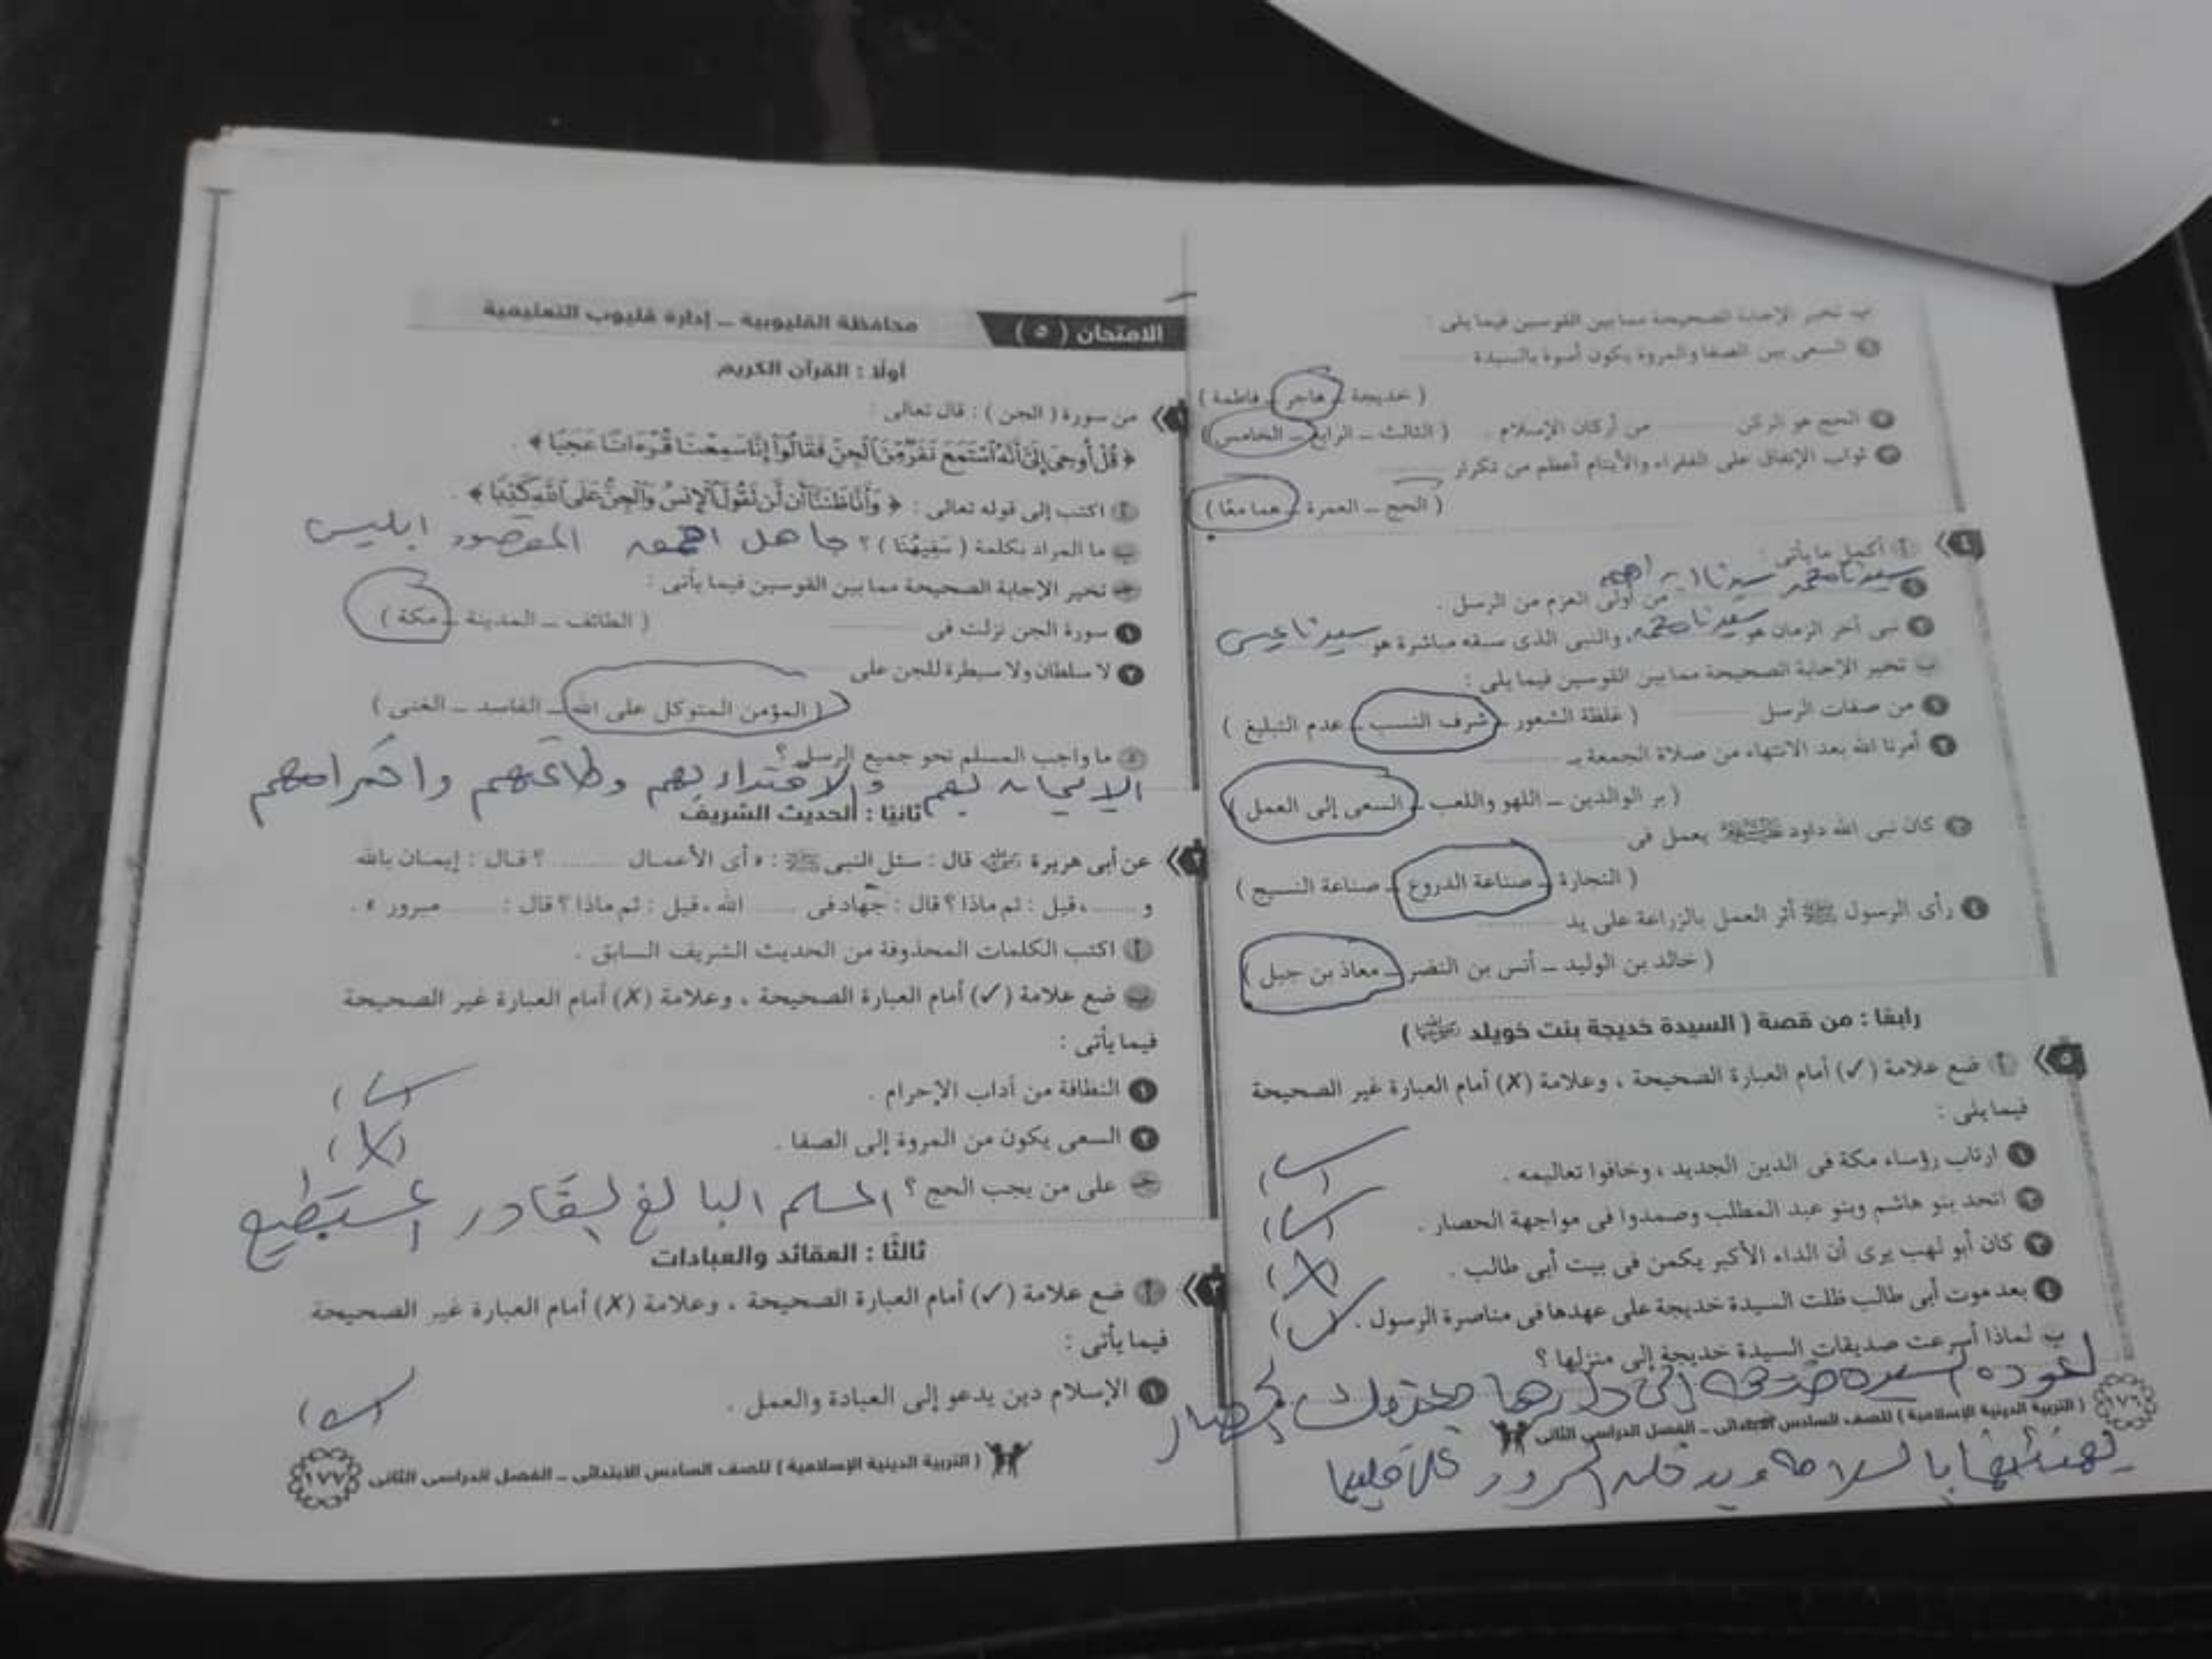 ب تخير الإجابة الصحيحة مما بين القوسين فيما يلى :
١ السعى بين الصفا والمروة يكون أسوة بالسيدة
( خديجة – هاجر – فاطمة )
٢ الحج هو الركن من أركان الإسلام . ( الثالث – الرابع – الخامس )
٣ ثواب الإنفاق على الفقراء والأيتام أعظم من تكرار
( الحج – العمرة – هما معًا )
٤ أ أكمل ما يأتى :
١ سيدنا محمد سيدنا من أولى العزم من الرسل .
٢ نبى آخر الزمان هو سيدنا محمد ، والنبى الذى سبقه مباشرة هو سيدنا عيسى
ب تخير الإجابة الصحيحة مما بين القوسين فيما يلى :
١ من صفات الرسل ( غلظة الشعور – شرف النسب – عدم التبليغ )
٢ أمرنا الله بعد الانتهاء من صلاة الجمعة بـ
( بر الوالدين – اللهو واللعب – السعى إلى العمل )
٣ كان نبى الله داود يعمل فى
( النجارة – صناعة الدروع – صناعة النسيج )
٤ رأى الرسول ﷺ أثر العمل بالزراعة على يد
( خالد بن الوليد – أنس بن النضر – معاذ بن جبل )
رابعًا : من قصة ( السيدة خديجة بنت خويلد )
٥ أ ضع علامة (✓) أمام العبارة الصحيحة ، وعلامة (✗) أمام العبارة غير الصحيحة
فيما يلى :
١ ارتاب رؤساء مكة فى الدين الجديد ، وخافوا تعاليمه . (✓)
٢ اتحد بنو هاشم وبنو عبد المطلب وصمدوا فى مواجهة الحصار . (✓)
٣ كان أبو لهب يرى أن الداء الأكبر يكمن فى بيت أبى طالب . (✗)
٤ بعد موت أبى طالب ظلت السيدة خديجة على عهدها فى مناصرة الرسول . (✓)
ب لماذا أسرعت صديقات السيدة خديجة إلى منزلها ؟
لعوده السيده خديجه إلى دارها الحصار
١٧٦ ( التربية الدينية الإسلامية ) للصف السادس الابتدائى – الفصل الدراسى الثانى
بالسلامه السرور
الامتحان ( ٥ ) محافظة القليوبية – إدارة قليوب التعليمية
أولًا : القرآن الكريم
١ من سورة ( الجن ) : قال تعالى :
﴿ قُلْ أُوحِىَ إِلَىَّ أَنَّهُ ٱسْتَمَعَ نَفَرٌ مِّنَ ٱلْجِنِّ فَقَالُوٓا۟ إِنَّا سَمِعْنَا قُرْءَانًا عَجَبًا ﴾ .
أ اكتب إلى قوله تعالى : ﴿ وَأَنَّا ظَنَنَّآ أَن لَّن تَقُولَ ٱلْإِنسُ وَٱلْجِنُّ عَلَى ٱللَّهِ كَذِبًا ﴾ .
ب ما المراد بكلمة ( سَفِيهُنَا ) ؟ جاهل المقصود ابليس
ج تخير الإجابة الصحيحة مما بين القوسين فيما يأتى :
١ سورة الجن نزلت فى ( الطائف – المدينة – مكة )
٢ لا سلطان ولا سيطرة للجن على
( المؤمن المتوكل على الله – الفاسد – الغنى )
د ما واجب المسلم نحو جميع الرسل ؟
الايمان بهم والاقتداء بهم وطاعتهم واحترامهم
ثانيًا : الحديث الشريف
٢ عن أبى هريرة قال : سئل النبى ﷺ : « أى الأعمال ......... ؟ قال : إيمان بالله
و ......... ، قيل : ثم ماذا ؟ قال : جهاد فى ......... الله ، قيل : ثم ماذا ؟ قال : ......... مبرور » .
أ اكتب الكلمات المحذوفة من الحديث الشريف السابق .
ب ضع علامة (✓) أمام العبارة الصحيحة ، وعلامة (✗) أمام العبارة غير الصحيحة
فيما يأتى :
١ النظافة من آداب الإحرام . (✓)
٢ السعى يكون من المروة إلى الصفا . (✗)
ج على من يجب الحج ؟ المسلم البالغ القادر المستطيع
ثالثًا : العقائد والعبادات
٣ أ ضع علامة (✓) أمام العبارة الصحيحة ، وعلامة (✗) أمام العبارة غير الصحيحة
فيما يأتى :
١ الإسلام دين يدعو إلى العبادة والعمل . (✓)
( التربية الدينية الإسلامية ) للصف السادس الابتدائى – الفصل الدراسى الثانى ١٧٧